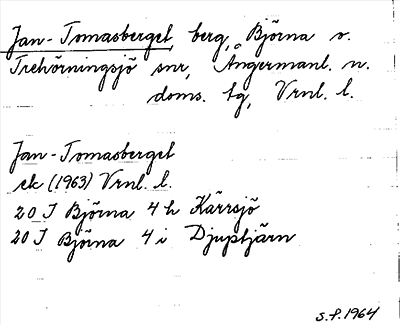 Jan-Tomasberget, berg, Björna o.
Trehörningsjö snr, Ångermanl. n.
doms. tg, Vrnl. l.
Jan-Tomasberget
ek (1963) Vrnl. l.
20 J Björna 4 h Kärrsjö
20 J Björna 4 i Djuptjärn
S.F. 1964